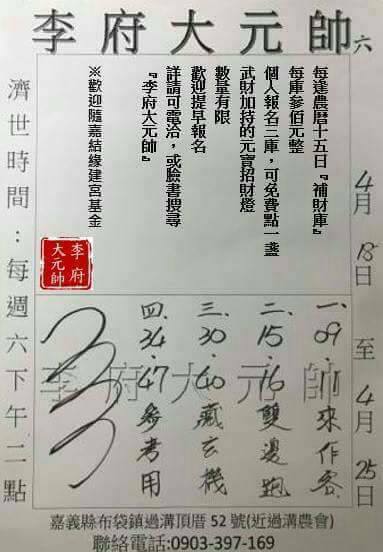 李府大元帥
六
4月18日至4月25日
每逢農曆十五日『補財庫』
每庫參佰元整
個人報名三庫，可免費點一盞
武財加持的元寶招財燈
數量有限
歡迎提早報名
詳請可電洽，或臉書搜尋
『李府大元帥』
※歡迎隨喜結緣建宮基金
李府
大元帥
濟世時間：每週六下午二點
李府大元帥
一、09.11來作客
二、15.16雙邊跑
三、30.40藏玄機
四、34.47參考用
嘉義縣布袋鎮過溝頂厝52號(近過溝農會)
聯絡電話:0903-397-169